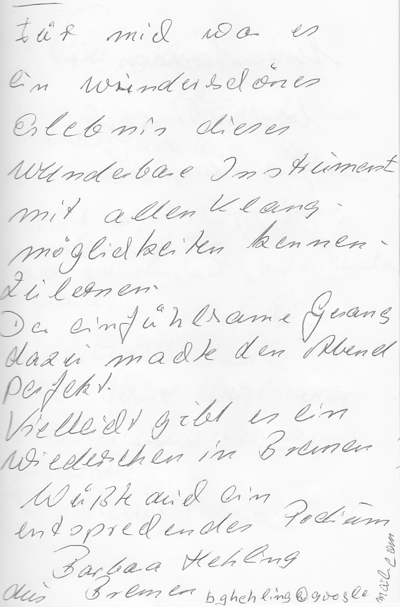 Für mich war es
ein wunderschönes
Erlebnis dieses
wunderbare Instrument
mit allen Klang-
möglichkeiten kennen-
zulernen.
Der einfühlsame Gesang
dazu machte den Abend
perfekt.
Vielleicht gibt es ein
Wiedersehen in Bremen
Wüßte auch ein
entsprechendes Podium
Barbara Hehling
aus Bremen b.ghehling@google
mail.com